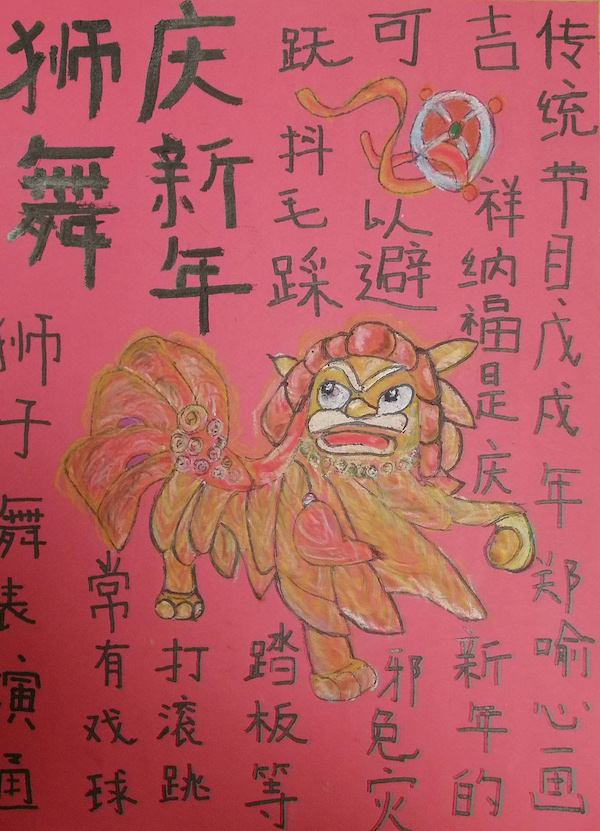 狮舞
庆新年
狮子舞表演通
常有戏球
打滚跳
跃抖毛踩踏板等
可以避邪免灾
吉祥纳福是庆新年的
传统节目戊戌年郑喻心画